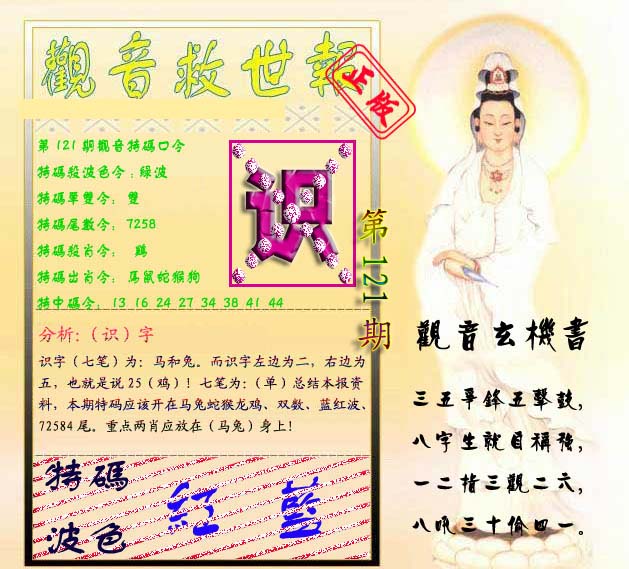 觀音救世報
正版
第121期觀音特碼口令
特碼殺波色令:綠波
特碼單雙令: 雙
特碼尾數令: 7258
特碼殺肖令: 鷄
特碼出肖令: 馬鼠蛇猴狗
特中碼令: 13 16 24 27 34 38 41 44
识
第121期
分析:（识）字
识字（七笔）为：马和兔。而识字左边为二，右边为
五，也就是说25（鸡）！七笔为:（单）总结本报资
料，本期特码应该开在马兔蛇猴龙鸡、双数、蓝红波、
72584尾。重点两肖应放在（马兔）身上！
特碼
波色
紅 藍
觀音玄機書
三五爭鋒五擊鼓,
八字生就自稱強,
一二指三觀二六,
八吼三十偷四一。